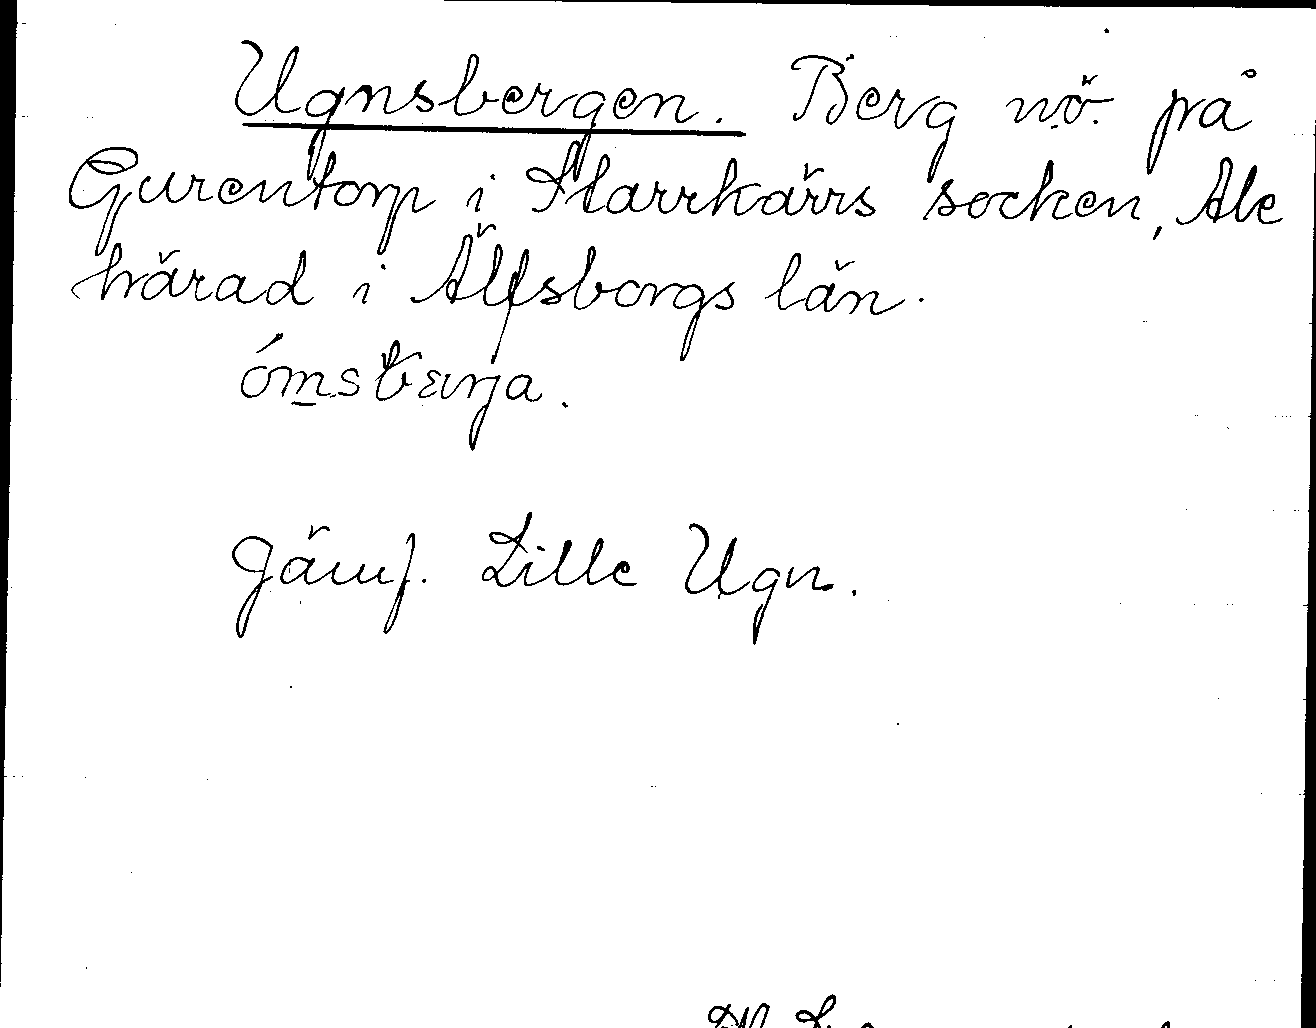 Ugnsbergen. Berg nö. på
Gurentorp i Starrkärrs socken, Ale
härad i Älfsborgs län.
óms bærja.
Jämf. Lille Ugn.